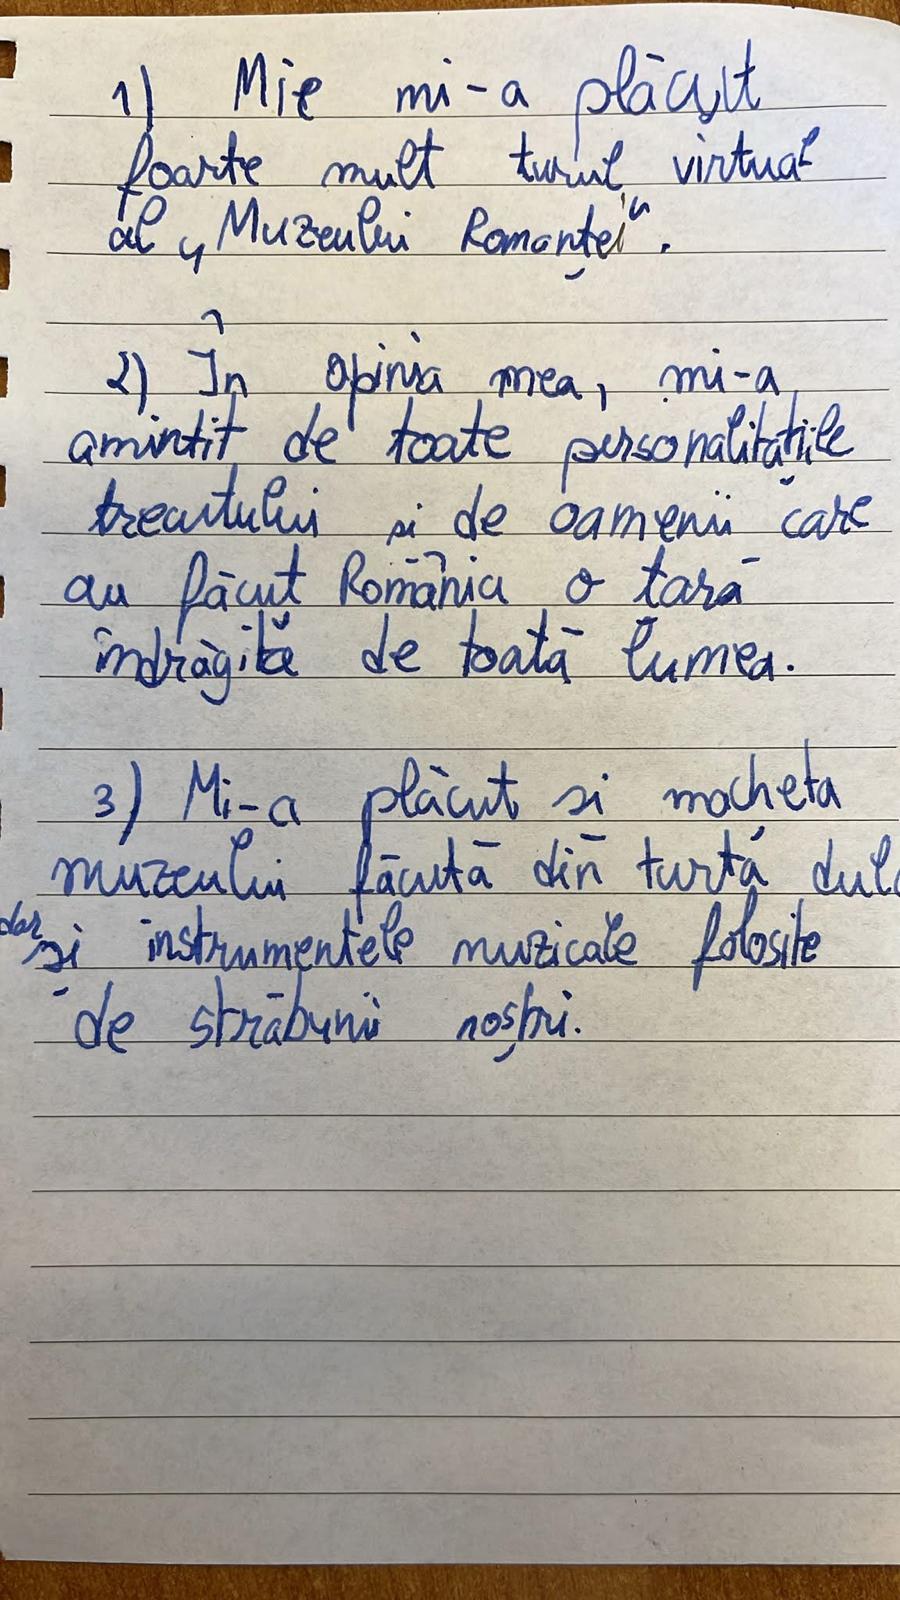 1) Mie mi-a plăcut
foarte mult turul virtual
al „Muzeului Romanței".
2) În opinia mea, mi-a
amintit de toate personalitățile
trecutului și de oamenii care
au făcut România o țară
îndrăgită de toată lumea.
3) Mi-a plăcut și macheta
muzeului făcută din turtă dulc
dar și instrumentele muzicale folosite
de străbunii noștri.